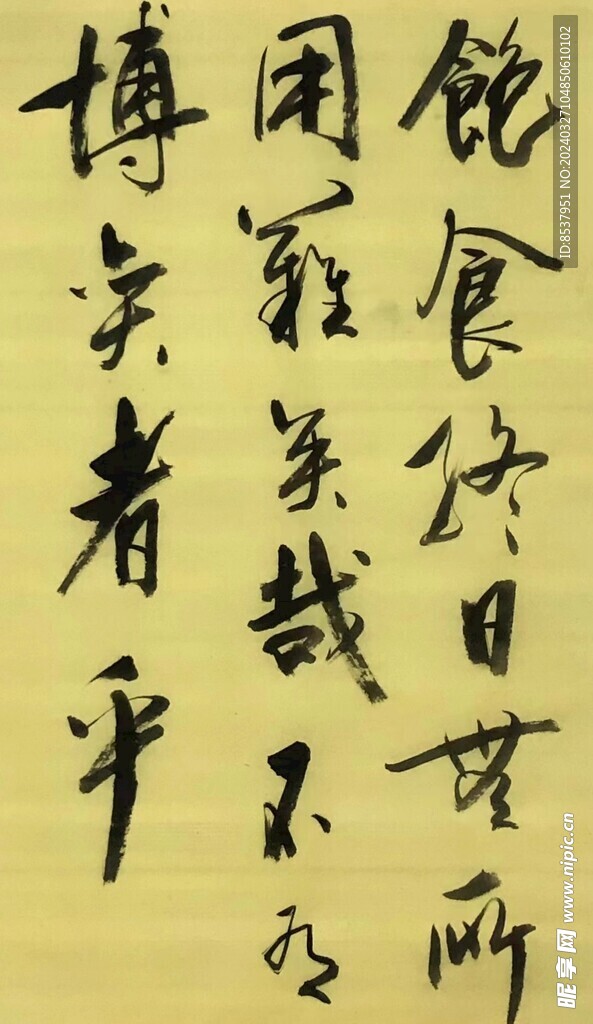 飽食終日無所
用難矣哉不有
博奕者乎
ID:8537951 NO:20240327104850610102
昵享网 www.nipic.cn